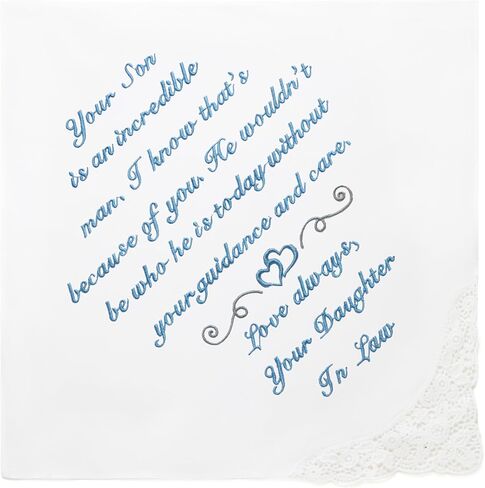 Your Son
is an incredible
man, I know that's
because of you. He wouldn't
be who he is today without
your guidance and care.
Love always,
Your Daughter
In Law